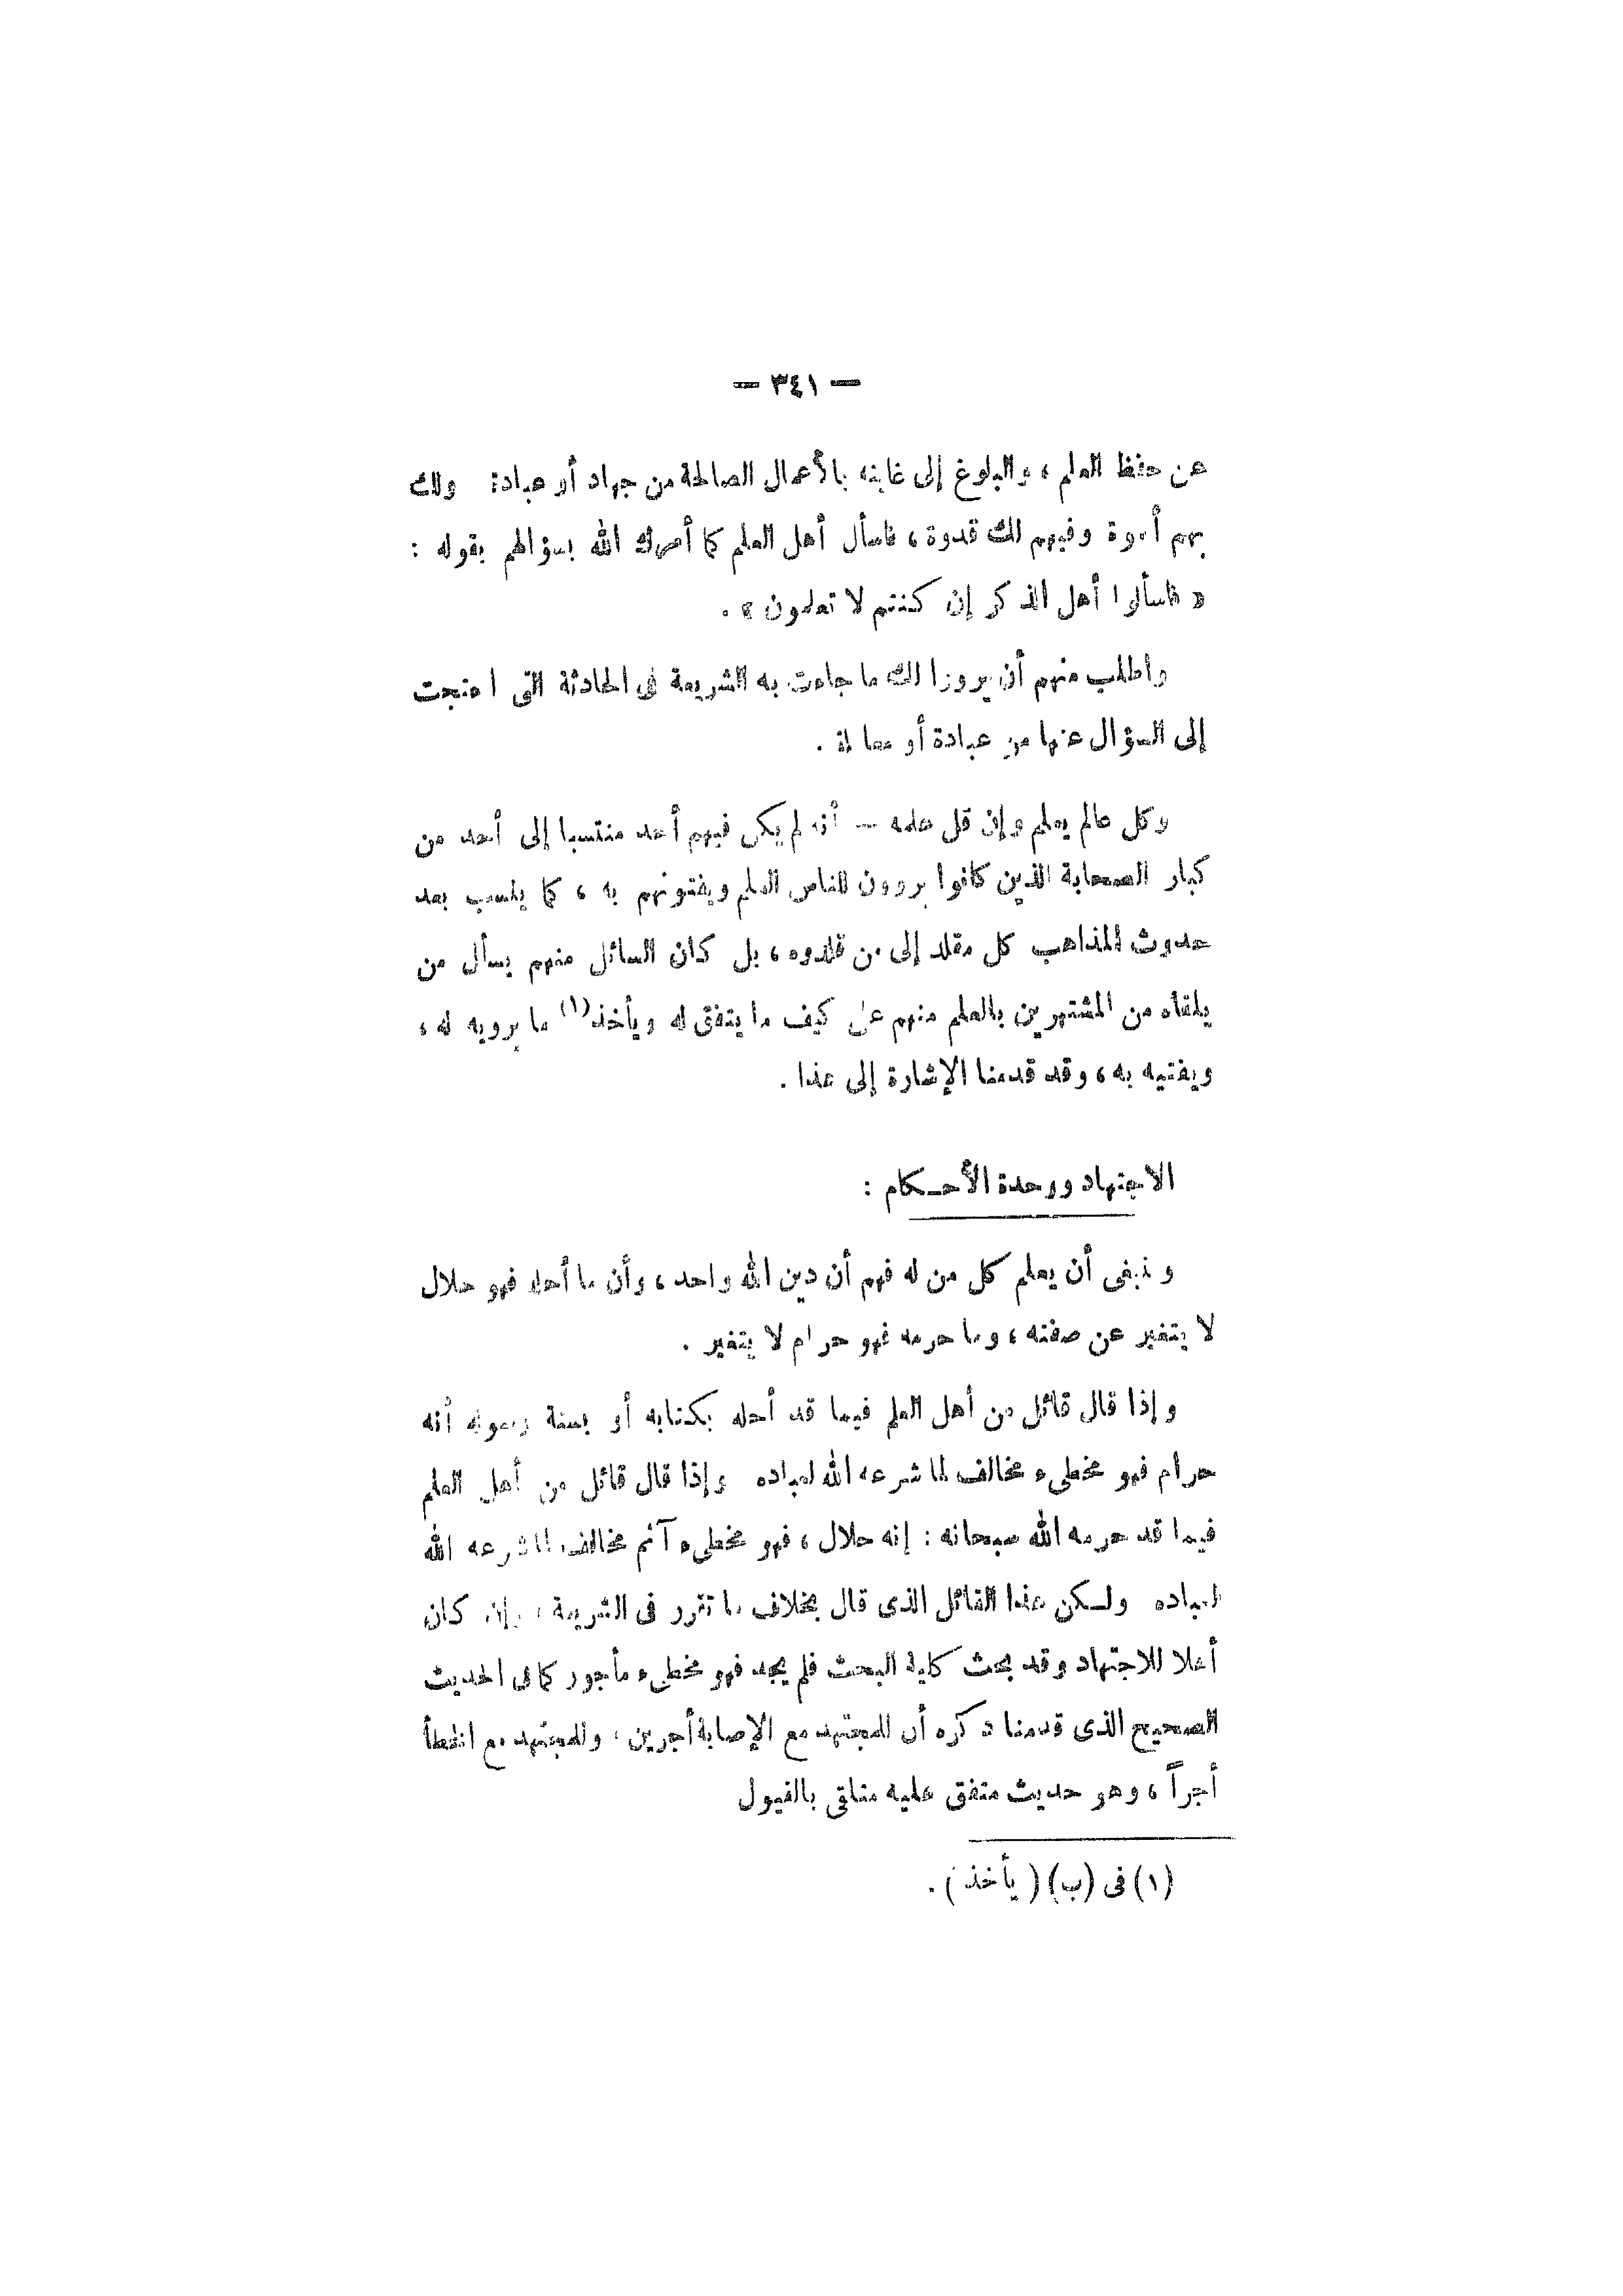 — ٣٤١ —
عن حفظ العلم ، والبلوغ إلى غايته بالأعمال الصالحة من جهاد أو عبادة ولك
بهم أسوة وفيهم لك قدوة ، فاسأل أهل العلم كما أمرك الله بسؤالهم بقوله :
« فاسألوا أهل الذكر إن كنتم لا تعلمون » .
واطلب منهم أن يرووا لك ما جاءت به الشريعة فى الحادثة التى احتجت
إلى السؤال عنها من عبادة أو معاملة .
وكل عالم يعلم وإن قل علمه — أنه لم يكن فيهم أحد منتسبا إلى أحد من
كبار الصحابة الذين كانوا يروون للناس العلم ويفتونهم به ، كما ينسب بعد
حدوث المذاهب كل مقلد إلى من قلدوه ، بل كان السائل منهم يسأل من
يلقاه من المشتهرين بالعلم منهم على كيف ما يتفق له ويأخذ(١) ما يرويه له ،
ويفتيه به ، وقد قدمنا الإشارة إلى هذا .
الاجتهاد ووحدة الأحكام :
وينبغى أن يعلم كل من له فهم أن دين الله واحد ، وأن ما أحله فهو حلال
لا يتغير عن صفته ، وما حرمه فهو حرام لا يتغير .
وإذا قال قائل من أهل العلم فيما قد أحله بكتابه أو بسنة رسوله أنه
حرام فهو مخطىء مخالف لما شرعه الله لعباده وإذا قال قائل من أهل العلم
فيما قد حرمه الله سبحانه : إنه حلال ، فهو مخطىء آثم مخالف لما شرعه الله
لعباده ولكن هذا القائل الذى قال بخلاف ما تقرر فى الشريعة ، إن كان
أهلا للاجتهاد وقد بحث كلية البحث فلم يجد فهو مخطىء مأجور كما فى الحديث
الصحيح الذى قدمنا ذكره أن للمجتهد مع الإصابة أجرين ، وللمجتهد مع الخطأ
أجراً ، وهو حديث متفق عليه متلقى بالقبول
(١) فى (ب) ( يأخذ ) .